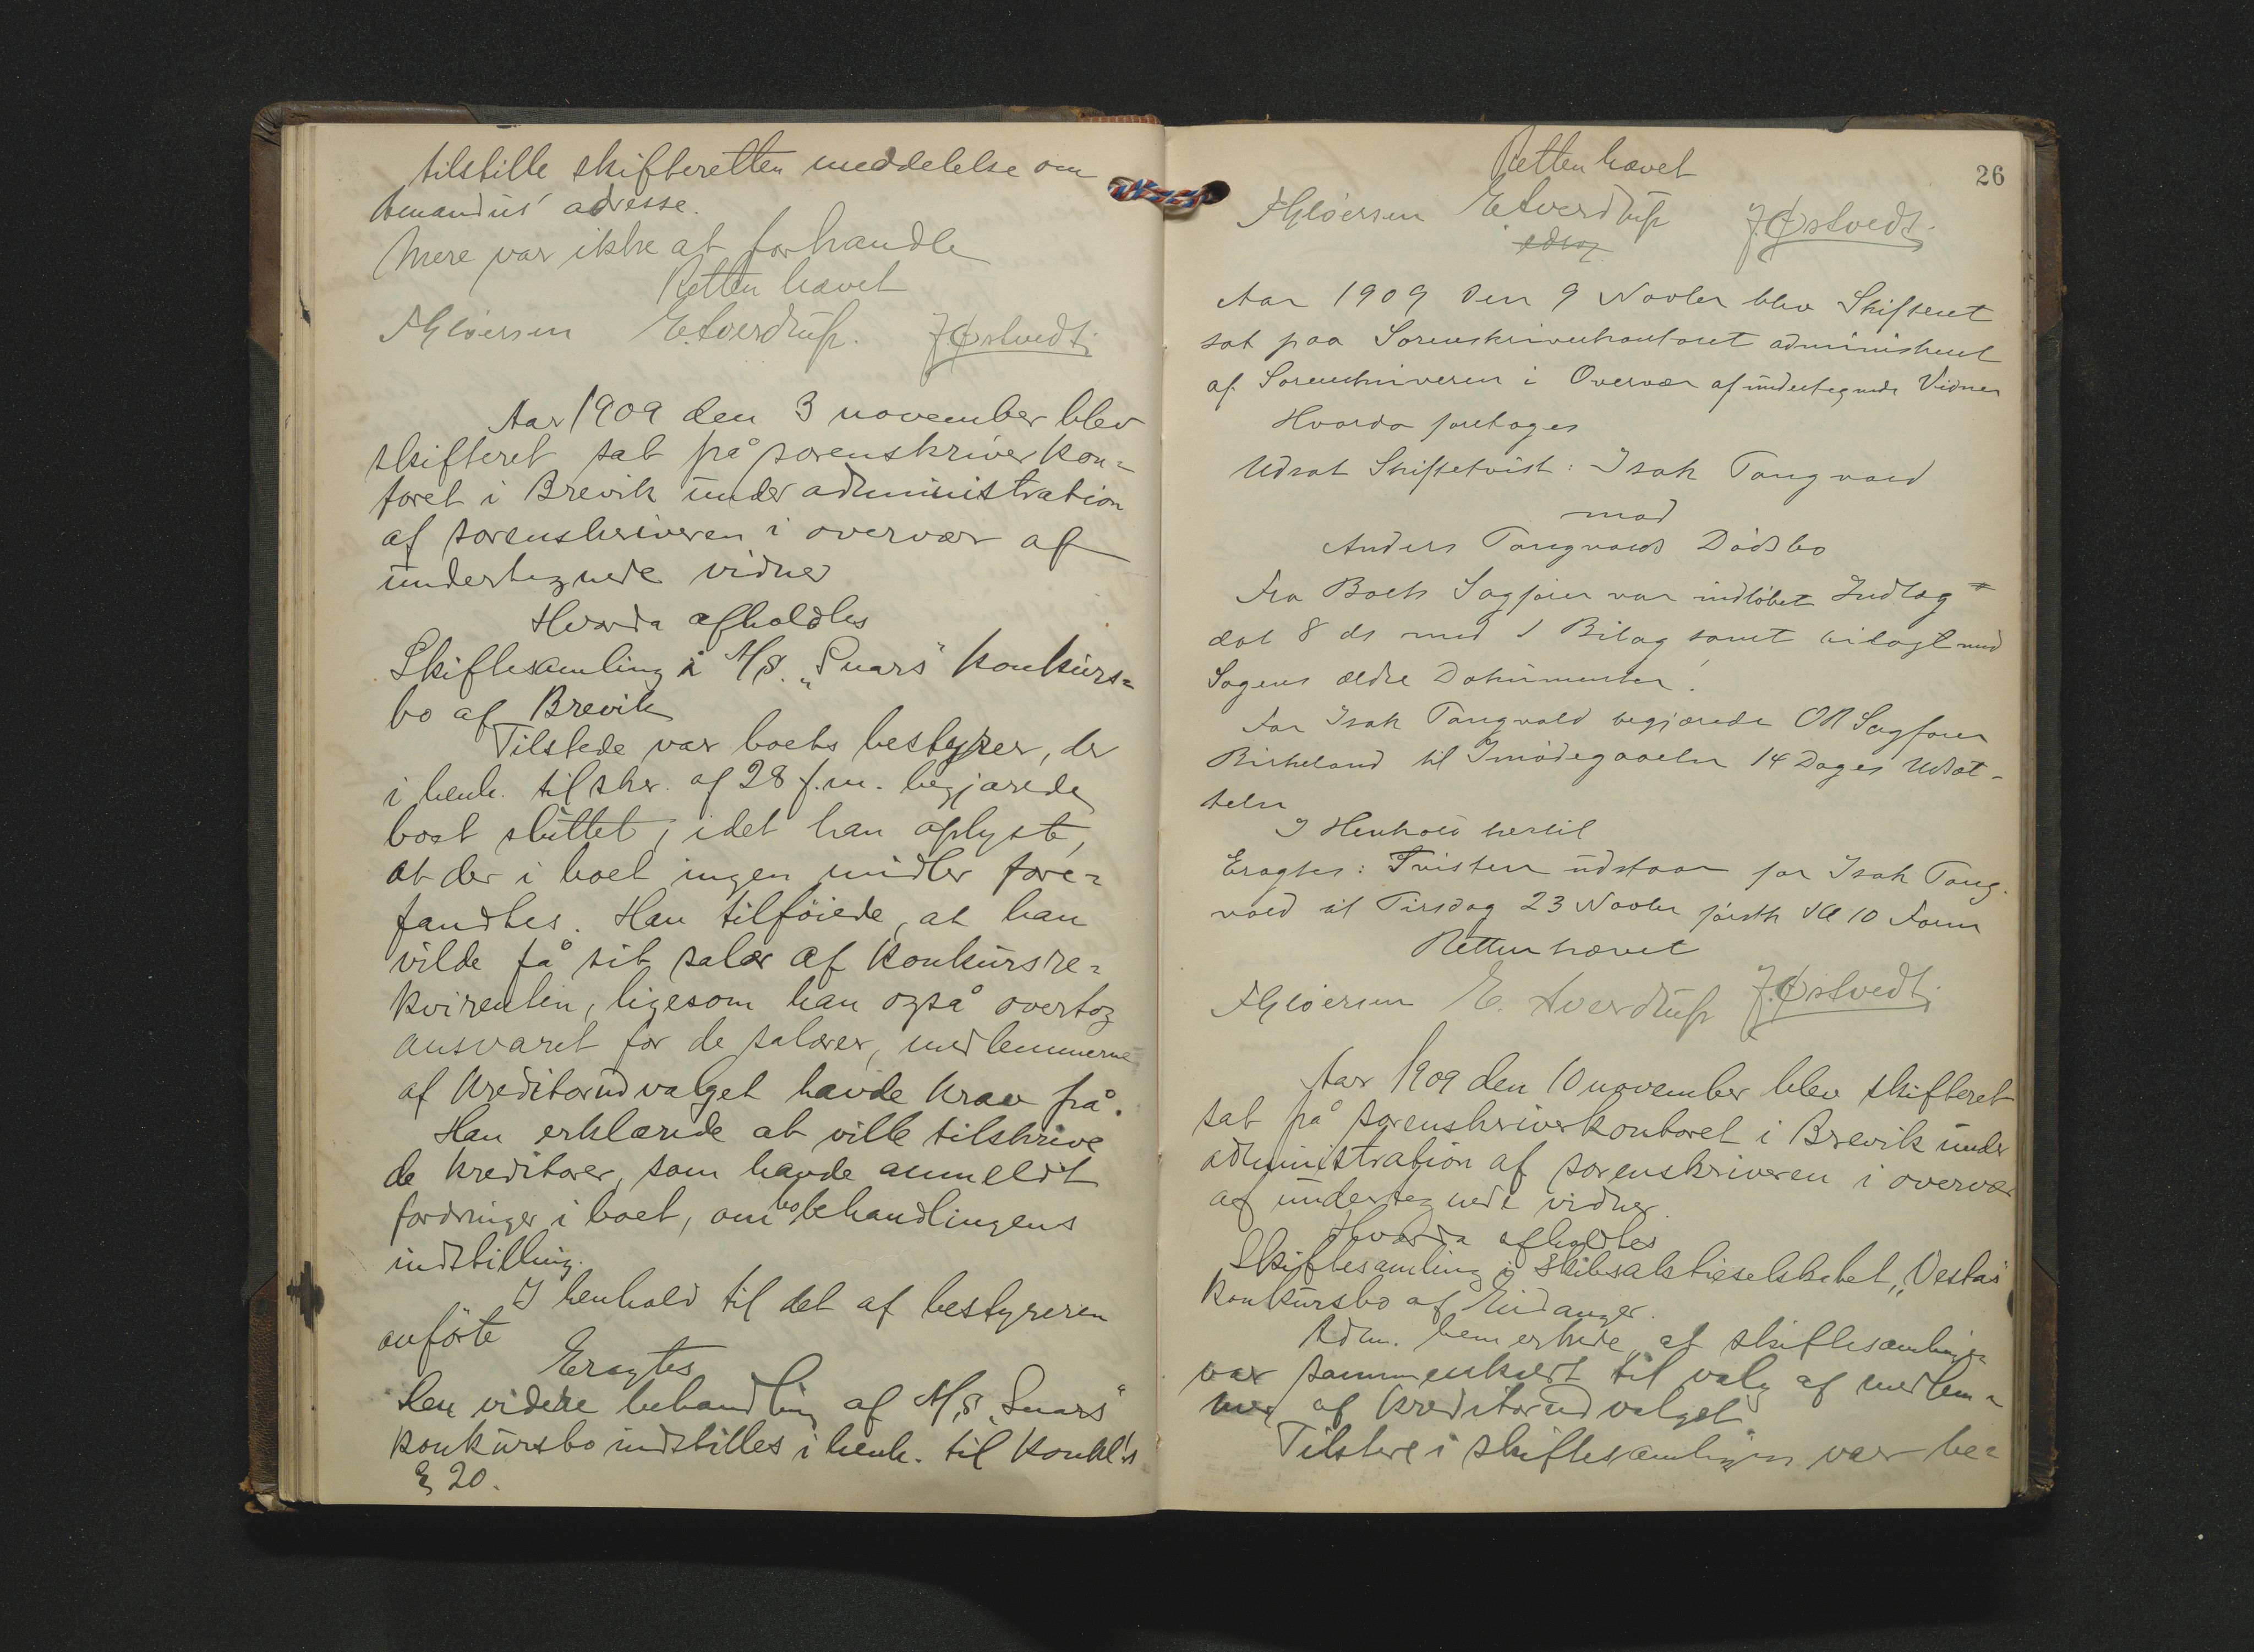 tilstille skifteretten meddelelse om
Amandus' adresse.
Mere var ikke at forhandle
Retten hævet
E. Sverdrup. J Østvedt.
Aar 1909 den 3 november blev
skifteret sat på sorenskriverkon=
toret i Brevik under administration
af sorenskriveren i overvær af
undertegnede vidner
Hvorda afholdtes
Skiftesamling i A/S. „Snars" konkurs=
bo af Brevik
Tilstede var boets bestyrer, der
i henh. til skr. af 28 f.m. begjærede
boet sluttet, idet han oplyste,
at der i boet ingen midler fore=
fandtes. Han tilföiede, at han
vilde få sit salær af konkursre=
kvirentin, ligesom han også overtog
ansvaret for de salærer, medlemmerne
af kreditorudvalget havde krav på.
Han erklærede at ville tilskrive
de kreditorer, som havde anmeldt
fordringer i boet, om bobehandlingens
indstilling.
I henhold til det af bestyreren
anförte
Eragtes
Den videre behandling af A/S „Snars"
konkursbo indstilles i henh. til konkl's
§ 20.
26
Retten hævet
E Sverdrup J. Østvedt.
Aar 1909 den 9 Novbr blev Skifteret
sat paa Sorenskriverkontoret administreret
af Sorenskriveren i Overvær af undertegnede Vidner
Hvorda foretoges
Udsat Skiftetvist: Isak Tangvald
mod
Anders Tangvalds Dödsbo
Fra Boets Sagförer var indlöbet Indlæg
dat 8 ds med 1 Bilag samt bilagt med
Sagens ældre Dokumenter.
For Isak Tangvald begjærede OR Sagförer
Birkeland til Imödegaaelse 14 Dages Udsæt-
telse
I Henhold hertil
Eragtes: Tvisten udstaar for Isak Tang-
vald til Tirsdag 23 Novbr förstk Kl 10 Form
Retten hævet
E. Sverdrup J. Østvedt.
Aar 1909 den 10 november blev skifteret
sat på sorenskriverkontoret i Brevik under
administration af sorenskriveren i overvær
af undertegnede vidner.
Hvorda afholdtes
Skiftesamling i Skibsaktieselskabet „Vestas"
konkursbo af Eidanger.
Adm. bemerkede, at skiftesamlingen
var sammenkaldt til valg af medlem=
mer af kreditorudvalget
Tilstede i skiftesamlingen var be=